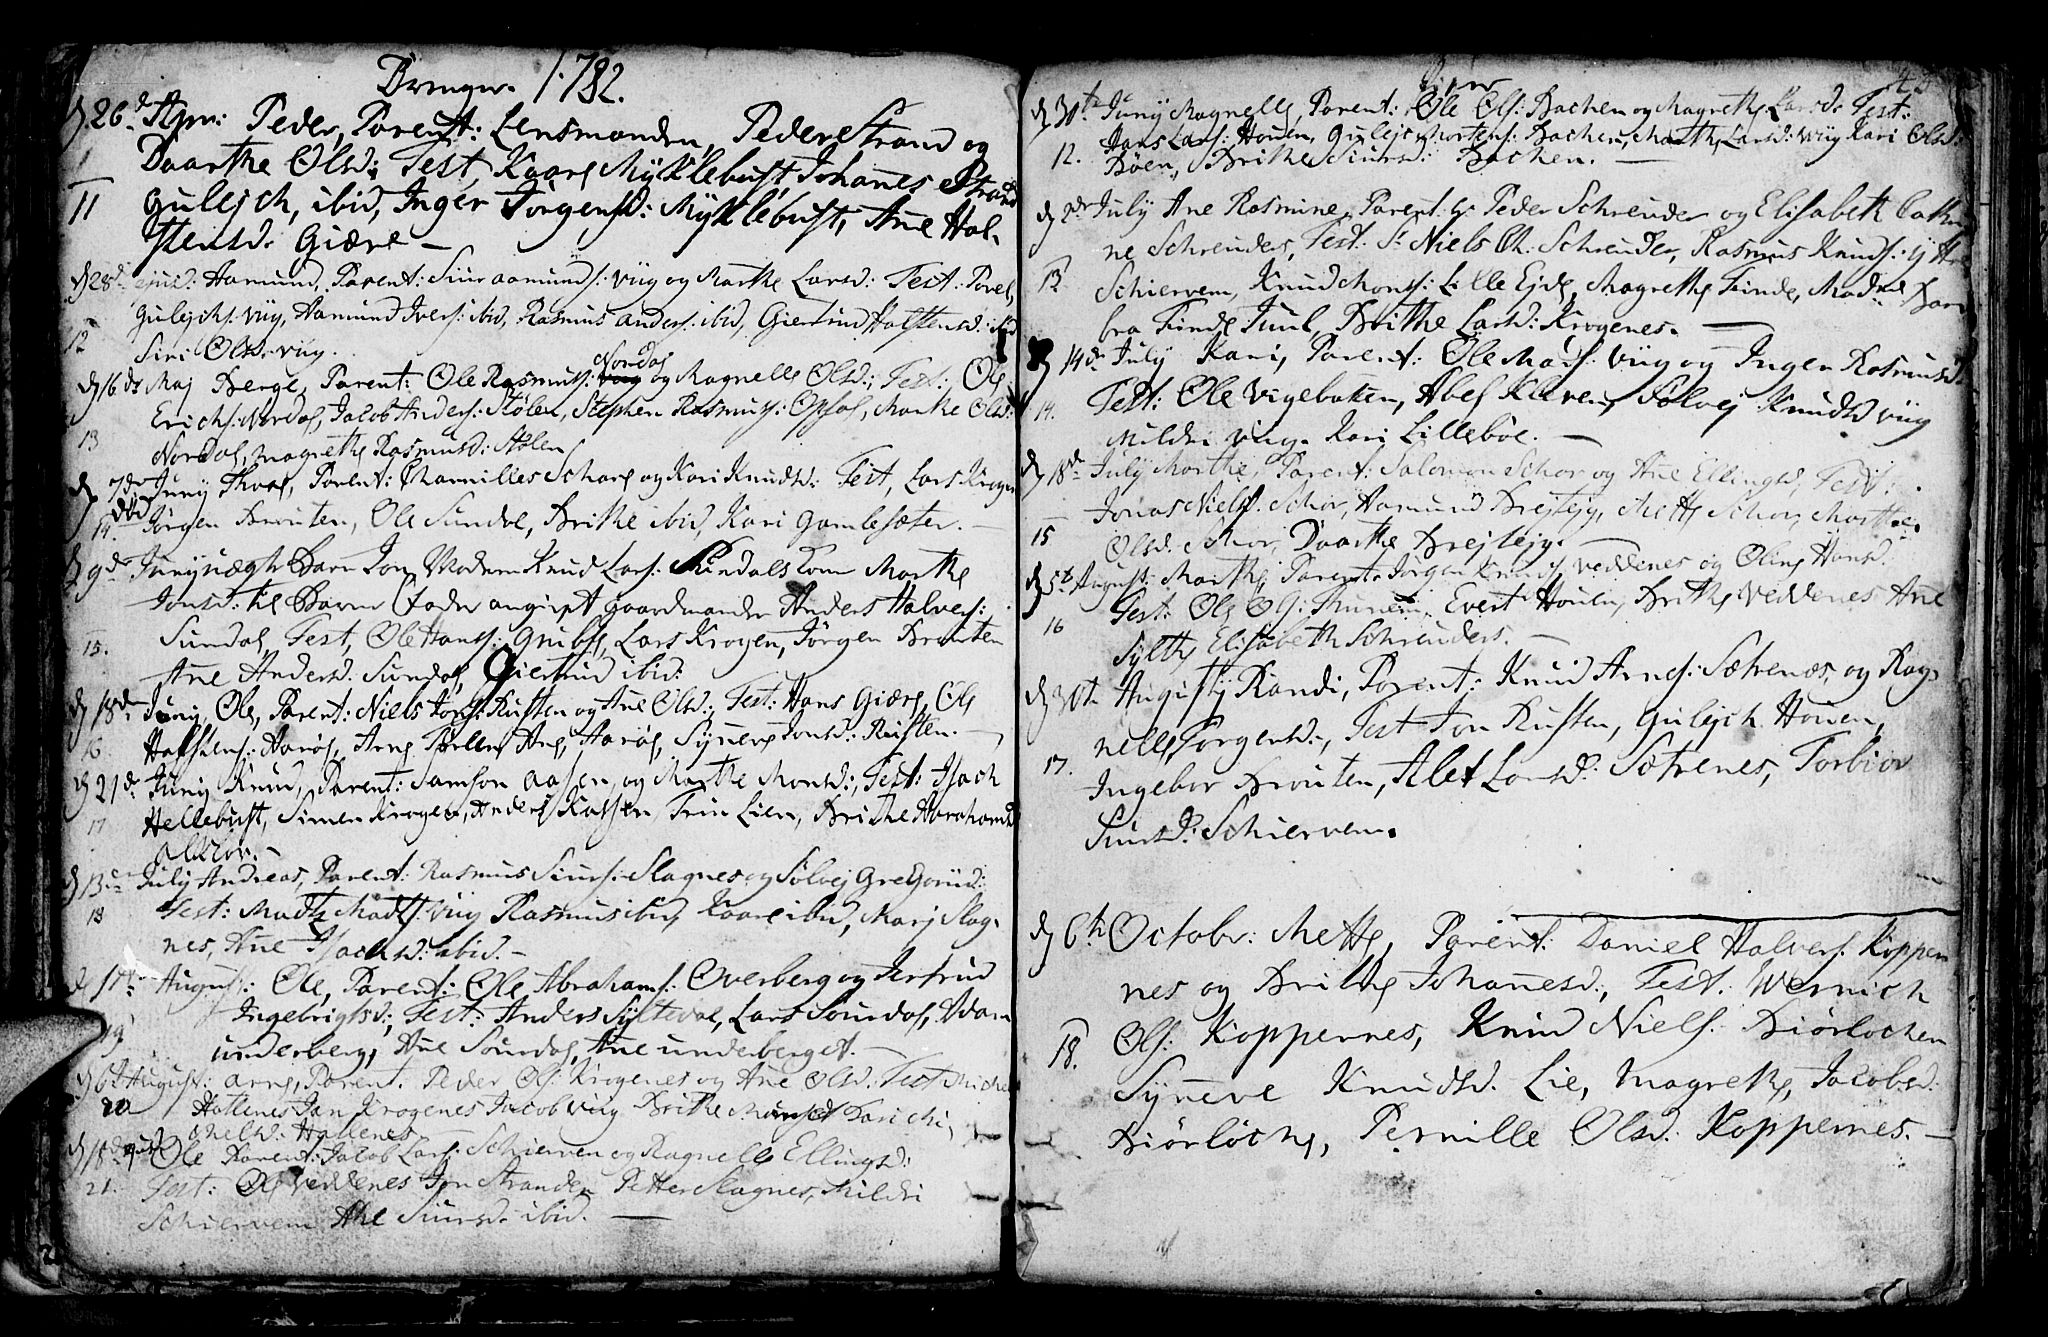 Drenger. 1782.
d 26.d Apr: Peder, Parent: Lensmanden, Peder Strand og
Daarthe Olsd: Test, Kaare Myklebust, Johanes Strand
11 Gulejch, ibid, Inger Jørgensd: Myklebust, Ane Hal-
stensd. Giære –
d 28d ejusd: Aamund, Parent: Siur Aamunds: Viig og Marthe Larsd: Test: Povel
Gulejchs: Viig, Aamund Ivers: ibid, Rasmus Anders: ibid, Giertrud Halstensd:
12 Siri Olsd. Viig.
d 16de Maj Berge, Parent: Ole Rasmus: Nordal og Magnelle Olsd; Test: Ole
Erichs: Nordal, Jacob Anders: Stølen, Stephen Rasmus: Opsal, Marthe Olsd:
13 Nordal, Magrethe Rasmusd: Stølen
d 7de Juny Thoas, Parent: Pharnilles Schare og Kari Knudsd: Test, Lars Krogen
14. Jørgen Brouten, Ole Sundal, Brithe ibid, Kari Gamlesæter. –
d 9de Juny uægte Barn Jon Modern Knud Lars: Sundals Kone Marthe
Jonsd: til Barne Fader angivet gaardmanden Anders Halvors:
15. Sundal, Test, Ole Hans: Grubs, Lars Krogen, Jørgen Brouten
Ane Andersd. Sundal, Giertrud ibid:
d 18de Juny, Ole, Parent: Niels Jons: Rusten og Ane Olsd:, Test: Hans Giære, Ole
16 Halstens: Aarøe, Arne, Aarøe, Syneve Jonsd: Rusten. –
d 21de Juny Knud, Parent: Samson Aasen og Marthe Monsd:, Test: Isach
17 Hellebust, Simen Krogen, Anders Kalsten Trin Lien, Brithe Abrahamsd
d 13de July Andreas, Parent: Rasmus Siurs: Slagnes og Sølvej Gregorisd:
18 Test: Madtz Madts: Viig Rasmus ibid, Kaare ibid, Marj Slag-
nes, Ane Isachsd: ibid. –
August: Ole, Parent: Ole Abrahams: Overberg og Jertrud
Ingebrigtsd:, Test: Anders Syltedal, Lars Sourdal, Adam
19 underberg, Ane Sourdal, Ane underberget. –
d 6t August: Arne, Parent. Peder Ols: Krogenes og Ane Olsd: Test Michel
20 Hattenes Jan Krogenes Jacob Viig Brithe Mari Mi-
chelsd: Hattenes
d 18de Ole Parent: Jacob Lars: Schierven og Ragnelle Ellingsd:
21. Test: Ole Veddenes Jon Stranden Petter Slagnes, Mildri
Schiervem Ane Siursd. ibid. –
d 30te Juny Magnelle, Parent: Ole Ols: Bachen og Magrethe Larsd. Test:
Hans Lars: Houen, Gulejch Mortens: Bachen, Marthe Larsd: Viig Kari Olsd:
12. Bøen, Brithe Siursd: Bachen. –
d 2de July Ane Rasmine, Parent: Peder Schreuder og Elisabeth Cathri
ne Schreuders, Test: Sr Niels Ch. Schreuder, Rasmus Knuds:
13. Schiervem, Knud Mons: Lille Ejde, Magrethe Finde, Madme Bar
bra Finde Juul, Brithe Larsd: Krogenes. –
d 14de July Kari, Parent: Ole Mads: Viig og Inger Rasmusd:
14. Test: Ole Vigebaken, Abel Kleven, Sølvej Knudsd Viig
Mildri Viig. Kari Lillebøe. –
d 18de July Marthe, Parent: Salomon Schor og Ane Ellingsd, Test:
Jonas Niels: Schor, Aamund Brejtejg, Mette Schor, Marthe
15 Olsd. Schor, Daarthe Brejtejg. –
d 5te August: Marthe, Parent: Jørgen Knuds: Veddenes og Oline Hansd:
16 Test: Ole Thunem, Evert Houen, Brithe Veddenes Ane
Sylthe Elisabeth Schreuders. –
d 30te Augusty Randi, Parent: Knud Arnes: Sætrenæs, og Rag-
nelle Jorgensd., Test Jon Rusten, Gulejch Houen,
17. Ingebor Brouten, Alet Larsd: Sætrenes, Torbior
Siursd: Schiervem.
d 6th Octobr: Mette, Parent: Daniel Halvors: Koppern
nes og Brithe Johanesd:, Test: Wernich
18. Ols: Koppernes, Knud Niels: Biørlochen
Syneve Knudsd. Lie, Magrethe, Jacobsd:
Biörløche, Pernille Olsd: Koppernes. –